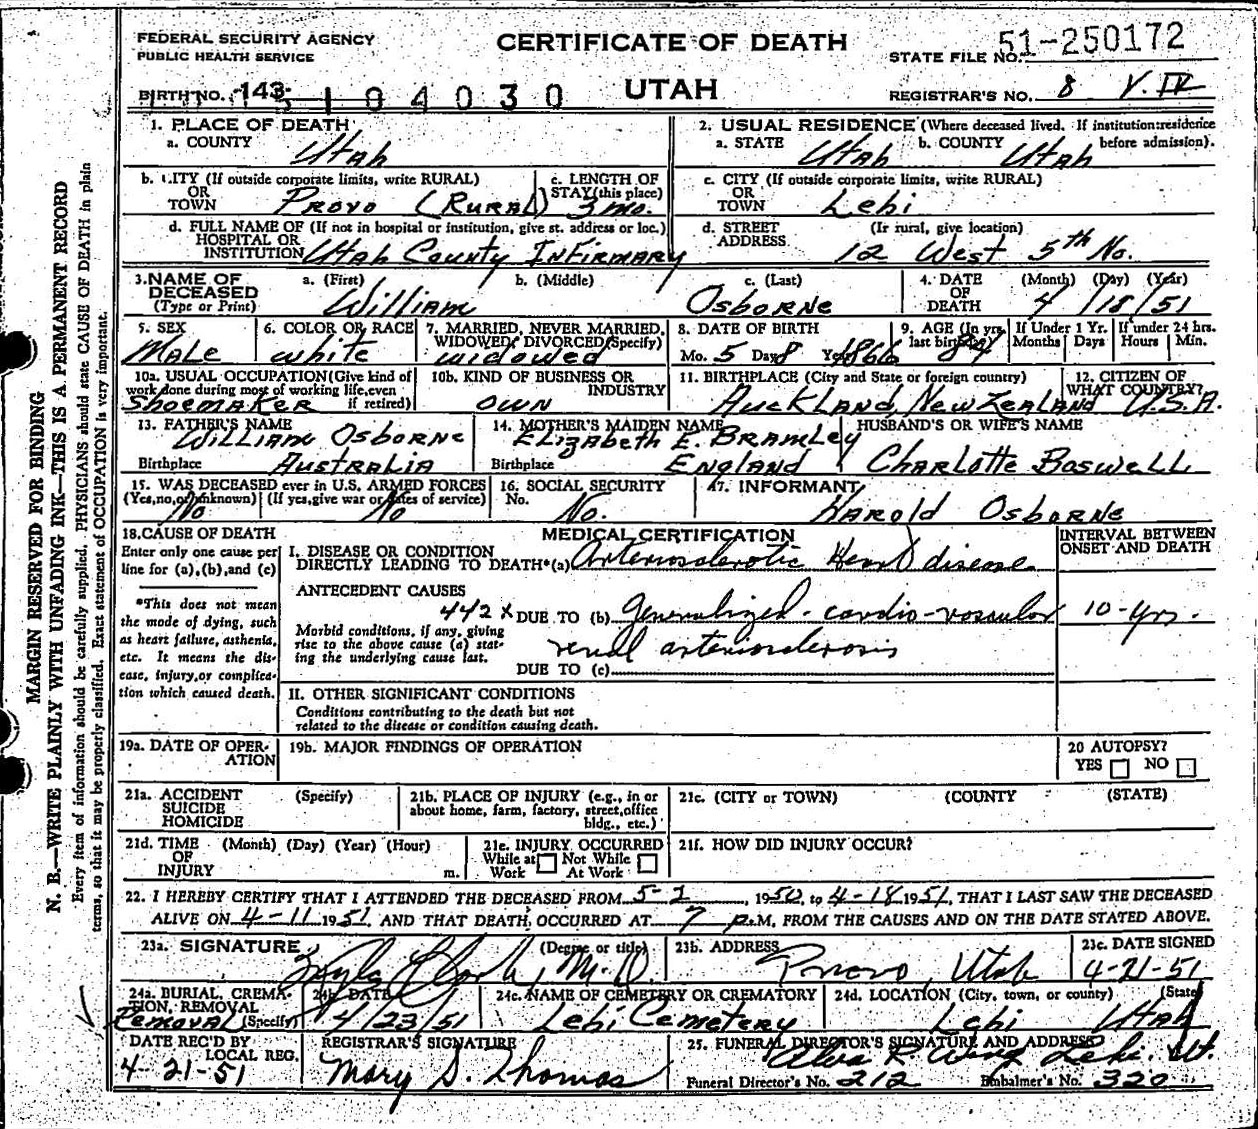 FEDERAL SECURITY AGENCY
PUBLIC HEALTH SERVICE
CERTIFICATE OF DEATH
UTAH
STATE FILE NO. 51-250172
BIRTH NO. 143- 194030
REGISTRAR'S NO. 8 V. IV
1. PLACE OF DEATH
a. COUNTY Utah
2. USUAL RESIDENCE (Where deceased lived. If institution: residence before admission).
a. STATE Utah b. COUNTY Utah
b. CITY (If outside corporate limits, write RURAL) OR TOWN Provo (Rural)
c. LENGTH OF STAY (this place) 3 mo.
c. CITY (If outside corporate limits, write RURAL) OR TOWN Lehi
d. FULL NAME OF (If not in hospital or institution, give st. address or loc.) HOSPITAL OR INSTITUTION Utah County Infirmary
d. STREET ADDRESS (If rural, give location) 12 West 5th No.
3. NAME OF DECEASED (Type or Print) a. (First) William b. (Middle) c. (Last) Osborne
4. DATE OF DEATH (Month) (Day) (Year) 4/18/51
5. SEX Male
6. COLOR OR RACE white
7. MARRIED, NEVER MARRIED, WIDOWED, DIVORCED (Specify) widowed
8. DATE OF BIRTH Mo. 5 Day 8 Year 1866
9. AGE (In yrs. last birthday) 84
If Under 1 Yr. Months Days
If under 24 hrs. Hours Min.
10a. USUAL OCCUPATION (Give kind of work done during most of working life, even if retired) Shoemaker
10b. KIND OF BUSINESS OR INDUSTRY own
11. BIRTHPLACE (City and State or foreign country) Auckland, New Zealand
12. CITIZEN OF WHAT COUNTRY? U.S.A.
13. FATHER'S NAME William Osborne
Birthplace Australia
14. MOTHER'S MAIDEN NAME Elizabeth E. Bramley
Birthplace England
HUSBAND'S OR WIFE'S NAME
Charlotte Boswell
15. WAS DECEASED ever in U.S. ARMED FORCES
(Yes, no, or unknown) No (If yes, give war or dates of service) No
16. SOCIAL SECURITY No. No.
17. INFORMANT
Harold Osborne
18. CAUSE OF DEATH
Enter only one cause per line for (a), (b), and (c)
*This does not mean the mode of dying, such as heart failure, asthenia, etc. It means the disease, injury, or complication which caused death.
MEDICAL CERTIFICATION
INTERVAL BETWEEN ONSET AND DEATH
I. DISEASE OR CONDITION DIRECTLY LEADING TO DEATH*(a) Arteriosclerotic Heart disease
ANTECEDENT CAUSES
442X DUE TO (b) Generalized-cardio-vascular 10-yrs.
renal arteriosclerosis
Morbid conditions, if any, giving rise to the above cause (a) stating the underlying cause last.
DUE TO (c)
II. OTHER SIGNIFICANT CONDITIONS
Conditions contributing to the death but not related to the disease or condition causing death.
19a. DATE OF OPERATION
19b. MAJOR FINDINGS OF OPERATION
20 AUTOPSY?
YES NO
21a. ACCIDENT SUICIDE HOMICIDE (Specify)
21b. PLACE OF INJURY (e.g., in or about home, farm, factory, street, office bldg., etc.)
21c. (CITY or TOWN) (COUNTY (STATE)
21d. TIME OF INJURY (Month) (Day) (Year) (Hour) m.
21e. INJURY OCCURRED
While at Work Not While At Work
21f. HOW DID INJURY OCCUR?
22. I HEREBY CERTIFY THAT I ATTENDED THE DECEASED FROM 5-2, 1950, to 4-18 1951, THAT I LAST SAW THE DECEASED
ALIVE ON 4-11 1951 AND THAT DEATH OCCURRED AT 7 p.M, FROM THE CAUSES AND ON THE DATE STATED ABOVE.
23a. SIGNATURE (Degree or title) Clark, M.D.
23b. ADDRESS Provo, Utah
23c. DATE SIGNED 4-21-51
24a. BURIAL, CREMATION, REMOVAL (Specify) Removal
24b. DATE 4/23/51
24c. NAME OF CEMETERY OR CREMATORY Lehi Cemetery
24d. LOCATION (City, town, or county) (State) Lehi Utah
DATE REC'D BY LOCAL REG. 4-21-51
REGISTRAR'S SIGNATURE
Mary S. Thomas
25. FUNERAL DIRECTOR'S SIGNATURE AND ADDRESS Alva R. Wing Lehi, Ut.
Funeral Director's No. 212 Embalmer's No. 320
MARGIN RESERVED FOR BINDING
N. B.—WRITE PLAINLY WITH UNFADING INK—THIS IS A PERMANENT RECORD
Every item of information should be carefully supplied. PHYSICIANS should state CAUSE OF DEATH in plain
terms, so that it may be properly classified. Exact statement of OCCUPATION is very important.